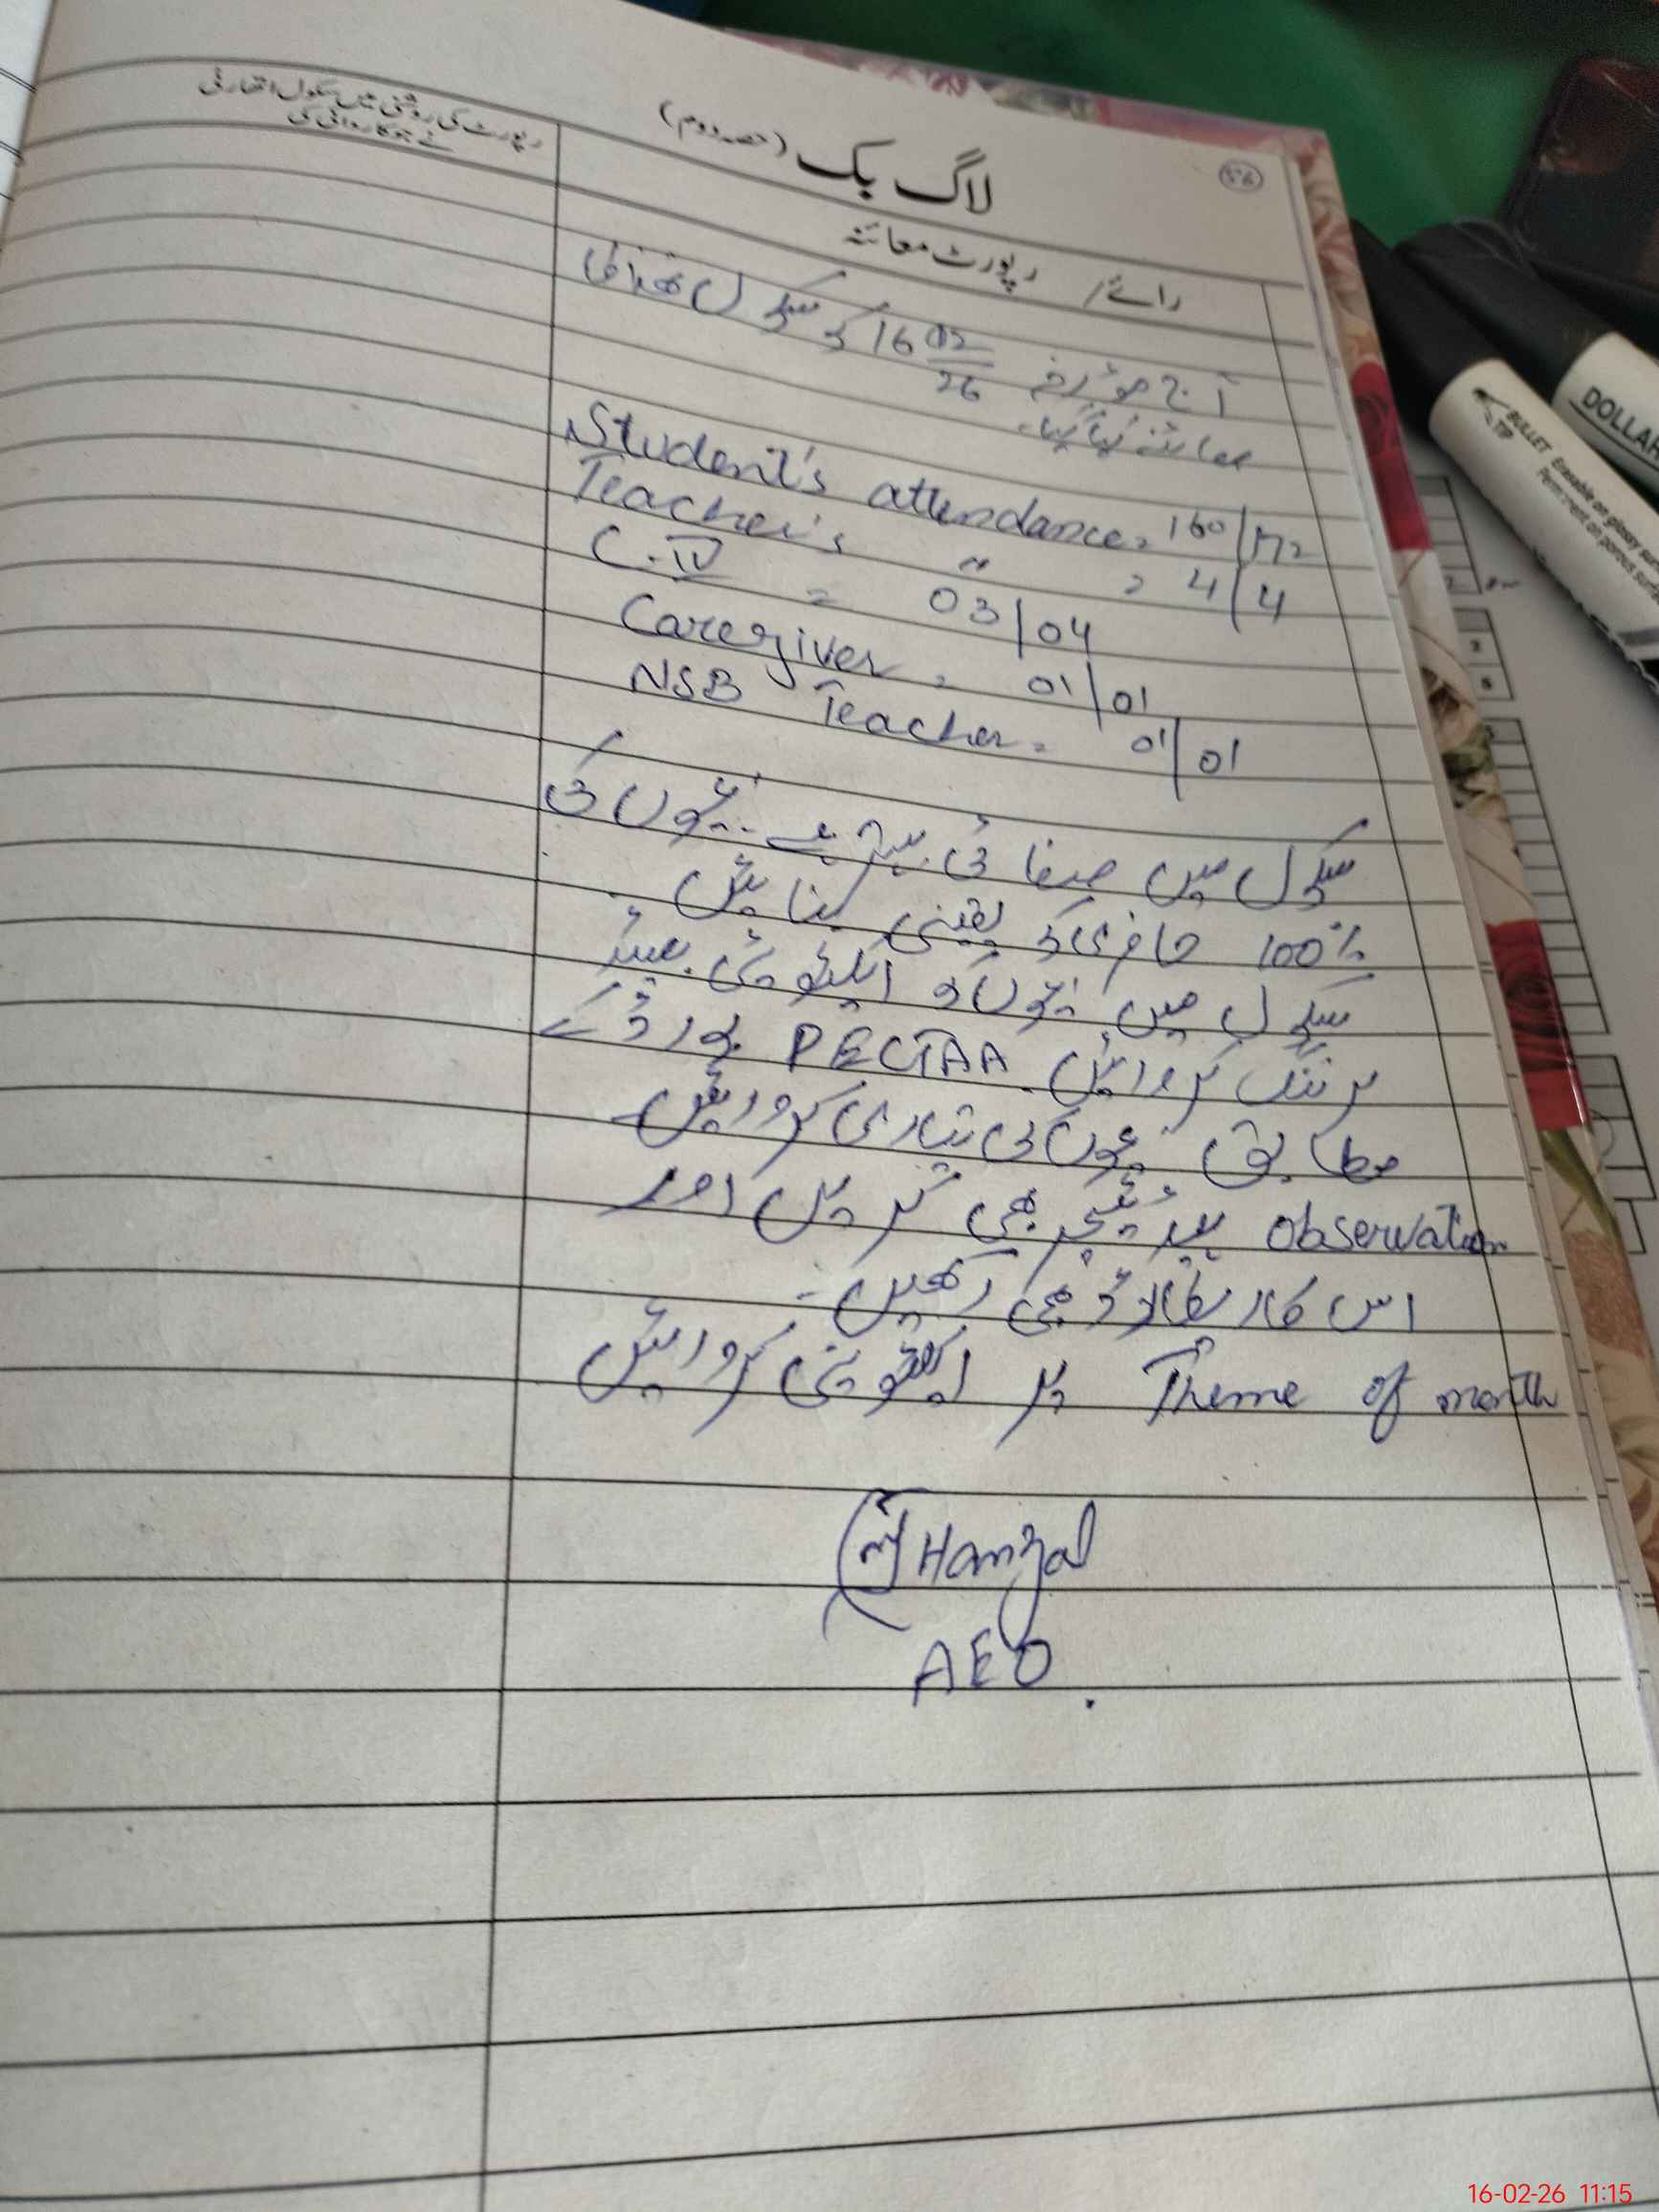 لاگ بک (حصہ دوم)
رائے / رپورٹ معائنہ
رپورٹ کی روشنی میں سکول اتھارٹی
نے جو کاروائی کی
آج مورخہ 16 02/26 کو سکول ھذا کا
معائنہ کیا گیا۔
Student's attendance = 160/172
Teacher's " = 4/4
C.IV = 03/04
Caregiver = 01/01
NSB Teacher = 01/01
سکول میں صفائی بہتر ہے۔ بچوں کی
100% حاضری کو یقینی بنائیں
سکول میں بچوں کو ایکٹیوٹی بیسڈ
لرننگ کروائیں۔ PECTAA بورڈ کے
مطابق بچوں کی تیاری کروائیں۔
observation ہیڈ ٹیچر بھی کریں اور
اس کا ریکارڈ بھی رکھیں۔
Theme of month پر ایکٹیوٹی کروائیں
Hamza
AEO
BULLET TIP
Erasable on glossy
Permanent on porous
DOLLAR
16-02-26 11:15